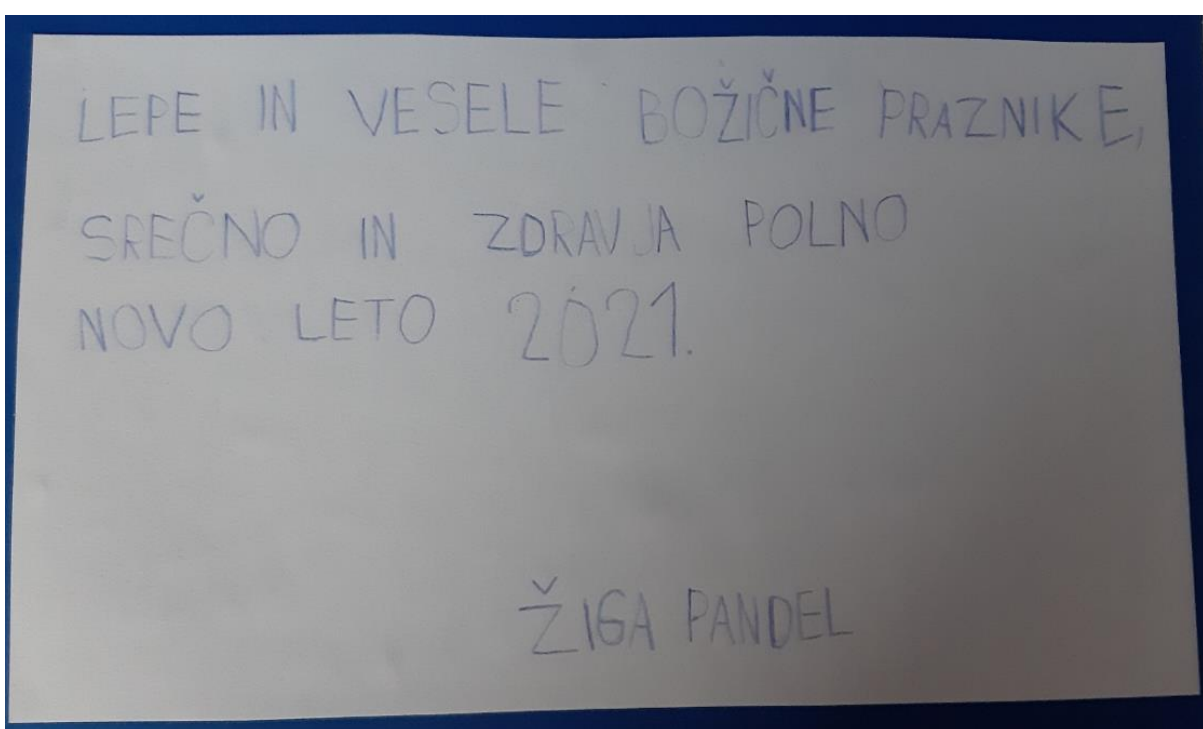 LEPE IN VESELE BOŽIČNE PRAZNIKE,
SREČNO IN ZDRAVJA POLNO
NOVO LETO 2021.
ŽIGA PANDEL